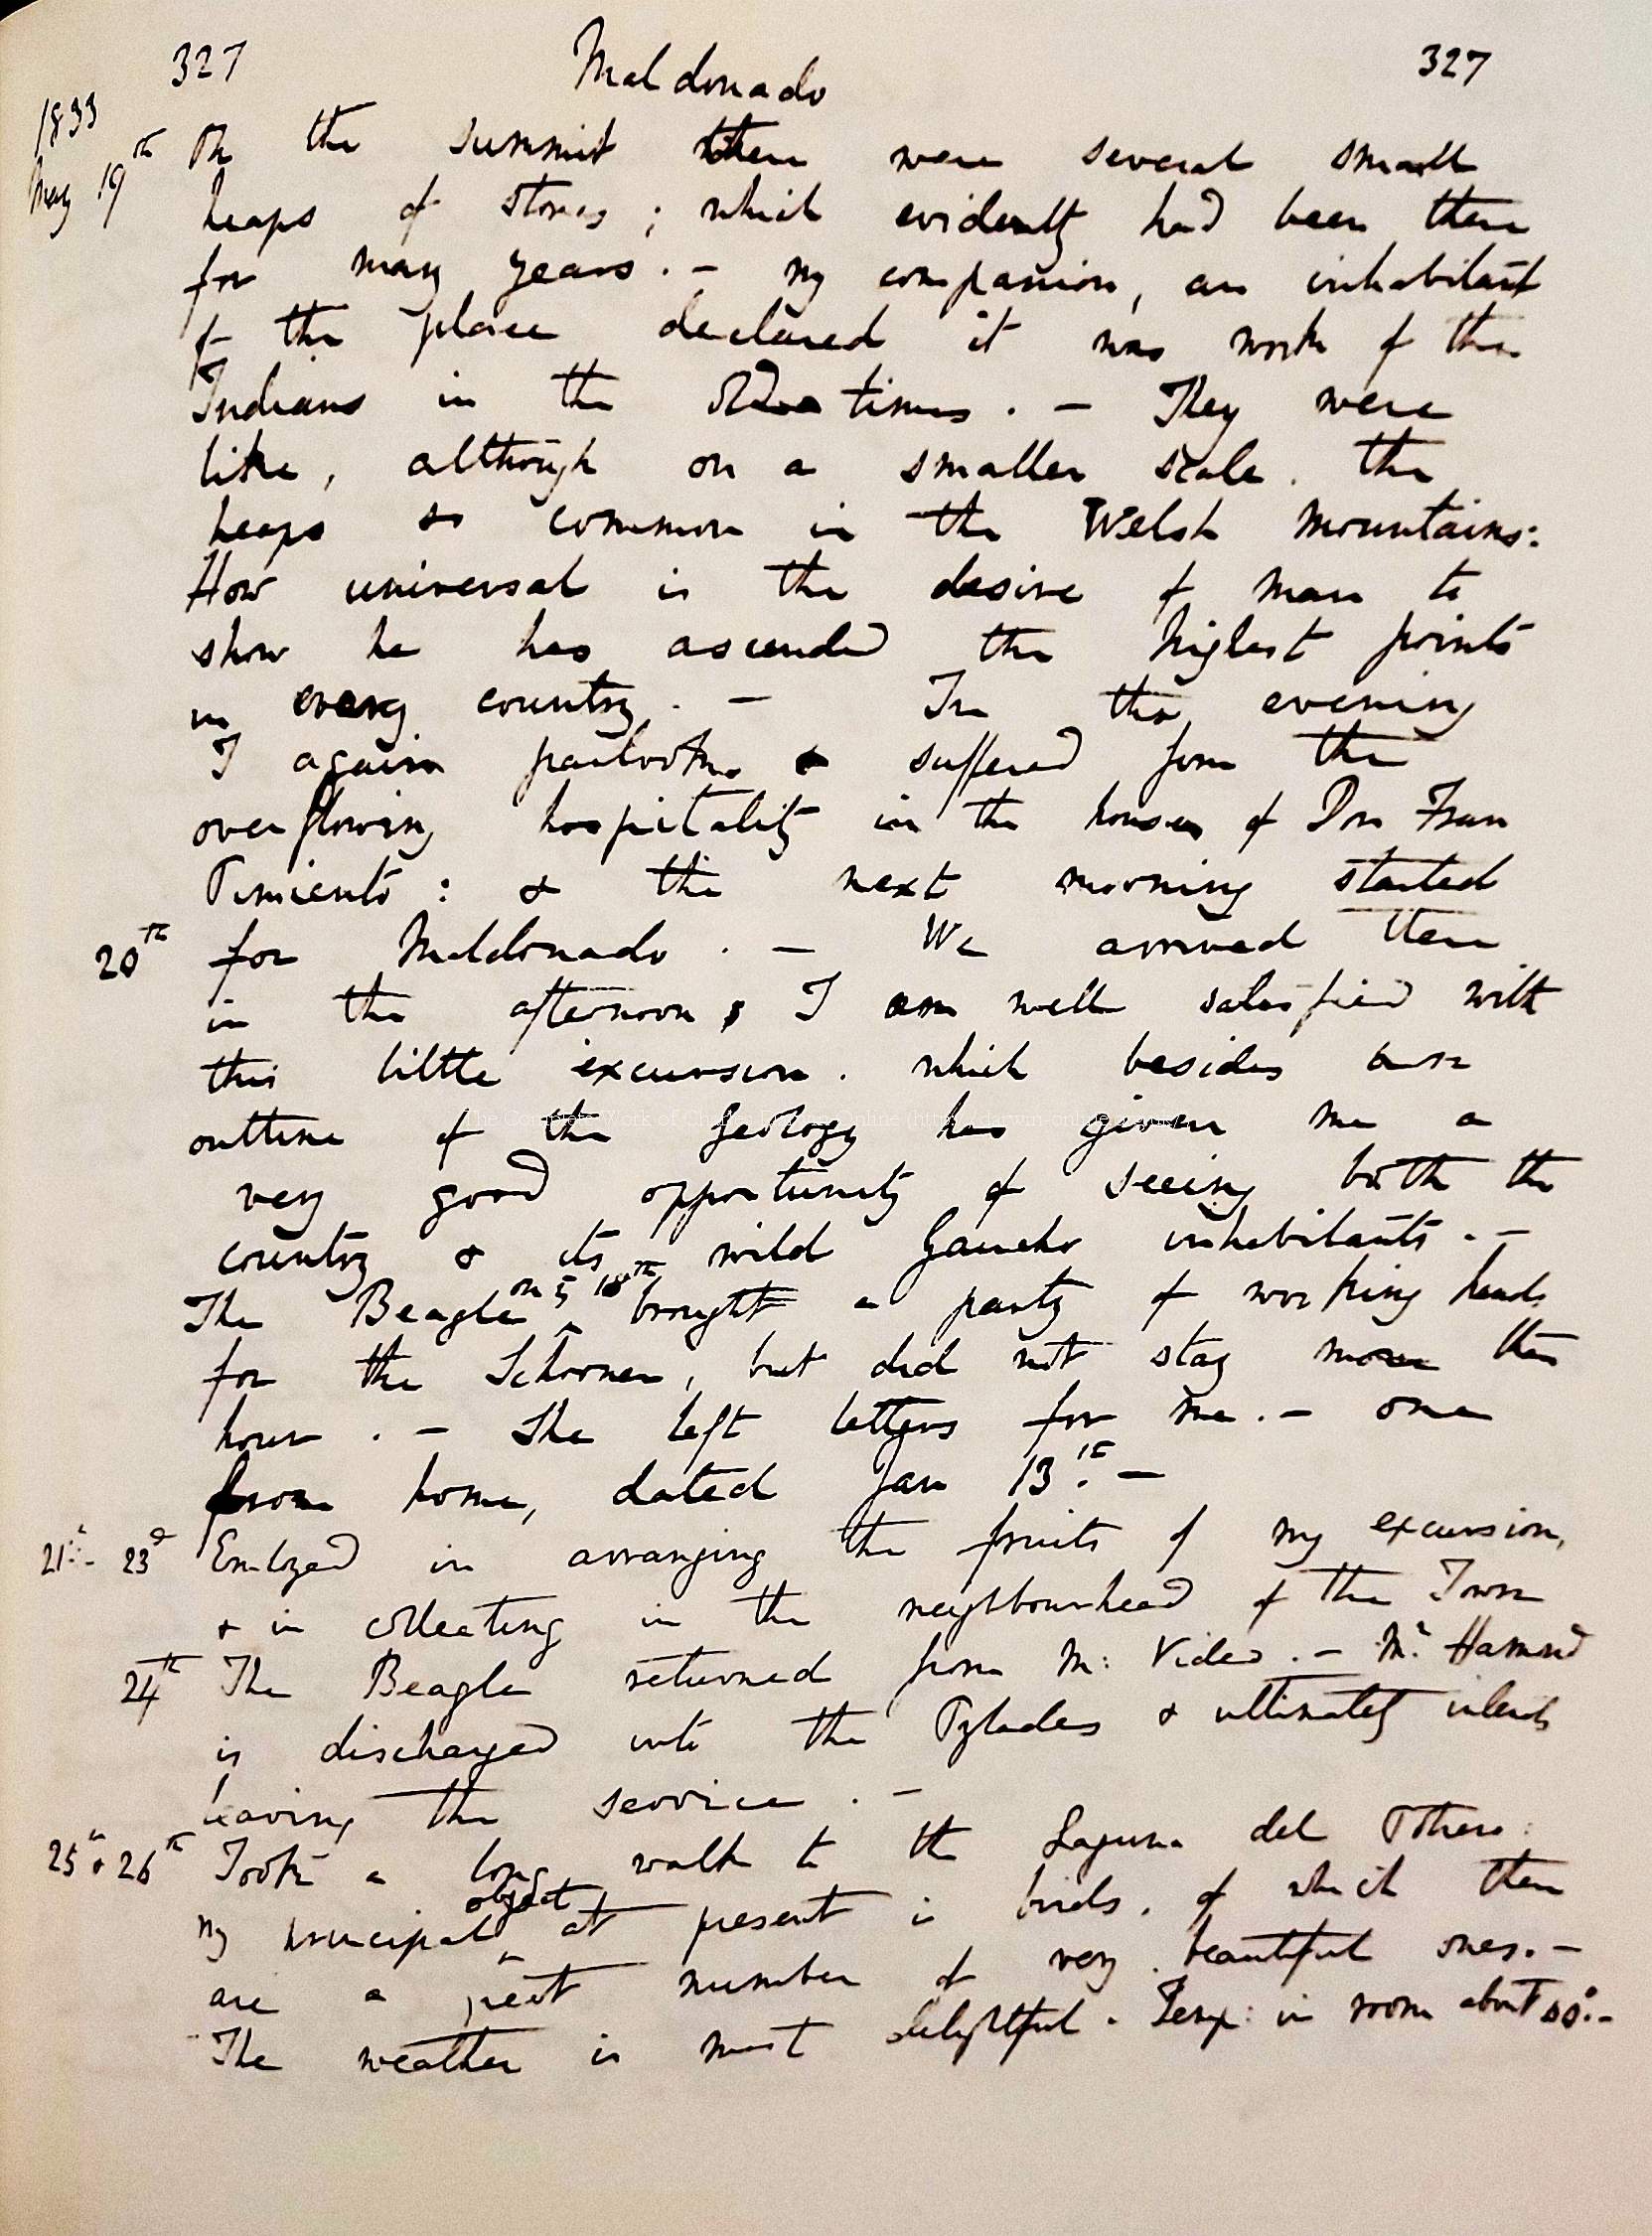 327 Maldonado 327
1833
May 19th On the summit there were several small
heaps of stones; which evidently had been there
for many years. — My companion, an inhabitant
of the place declared it was work of the
Indians in the olden times. — They were
like, although on a smaller scale, the
heaps so common in the Welsh mountains:
How universal is the desire of man to
show he has ascended the highest points
in every country. — In the evening
I again partook & suffered from the
overflowing hospitality in the house of Don Fran
Pimiento: & the next morning started
20th for Maldonado. — We arrived there
in the afternoon; I am well satisfied with
this little excursion. which besides an
outline of the geology has given me a
very good opportunity of seeing both the
country & its wild Gaucho inhabitants. —
The Beagle on 18th brought a party of working hands
for the Schooner, but did not stay more than
hour. — She left letters for me. — one
from home, dated Jan 13th. —
21st - 23d Employed in arranging the fruits of my excursion,
& in collecting in the neighbourhead of the Town
24th The Beagle returned from M: Video. — Mr. Hamond
is discharged into the Pylades & ultimately intends
leaving the service. —
25th & 26th Took a long walk to the Laguna del Potrero:
my principal object at present is birds, of which there
are a great number of very beautiful ones. —
The weather is most delightful. Temp: in room about —